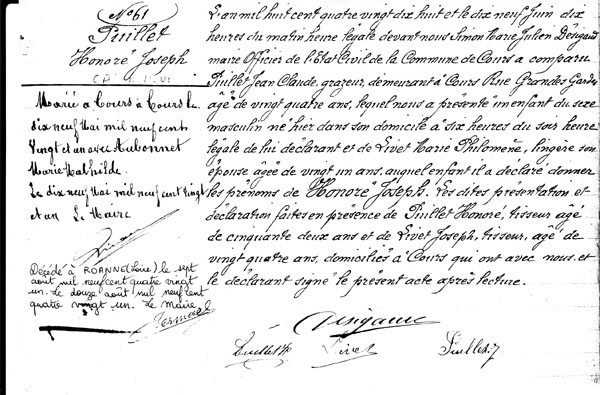 No 61
Puillet
Honoré Joseph
Marié à Cours à Cours le
dix neuf Mai mil neuf cent
vingt et un avec Aubonnet
Marie Mathilde.
Le dix neuf Mai mil neuf cent vingt
et un Le Maire
Décédé à ROANNE (Loire) le sept
août mil neuf cent quatre vingt
un. Le douze août mil neuf cent
quatre vingt un. Le Maire
L'an mil huit cent quatre vingt dix huit et le dix neuf Juin dix
heures du matin heure légale devant nous Simon Marie Julien Desigaud
maire Officier de l'Etat Civil de la Commune de Cours a comparu
Puillet Jean Claude, grazeur, demeurant à Cours Rue Grondes Gardes
âgé de vingt quatre ans, lequel nous a présenté un enfant du sexe
masculin né hier dans son domicile à six heures du soir heure
légale de lui déclarant et de Livet Marie Philomène, lingère son
épouse âgée de vingt un ans, auquel enfant il a déclaré donner
les prénoms de Honoré Joseph. Les dites présentation et
déclaration faites en présence de Puillet Honoré, tisseur âgé
de cinquante deux ans et de Livet Joseph, tisseur, âgé de
vingt quatre ans, domiciliés à Cours qui ont avec nous et
le déclarant signé le présent acte après lecture.
Puillet H. Livet Puillet J